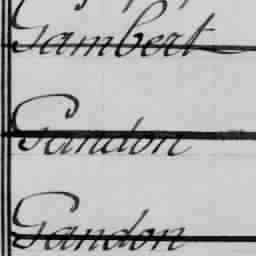 Gambert
Gandon
Gandon